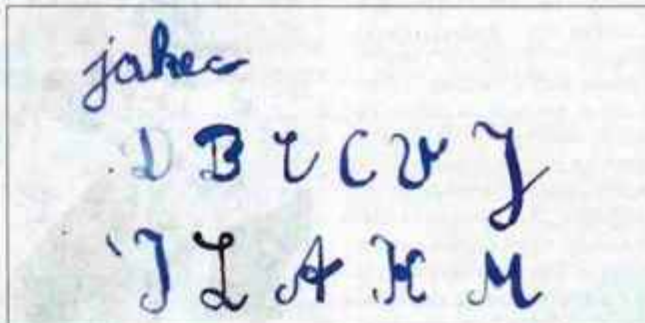 jakec
D B C C V J
J L A K M